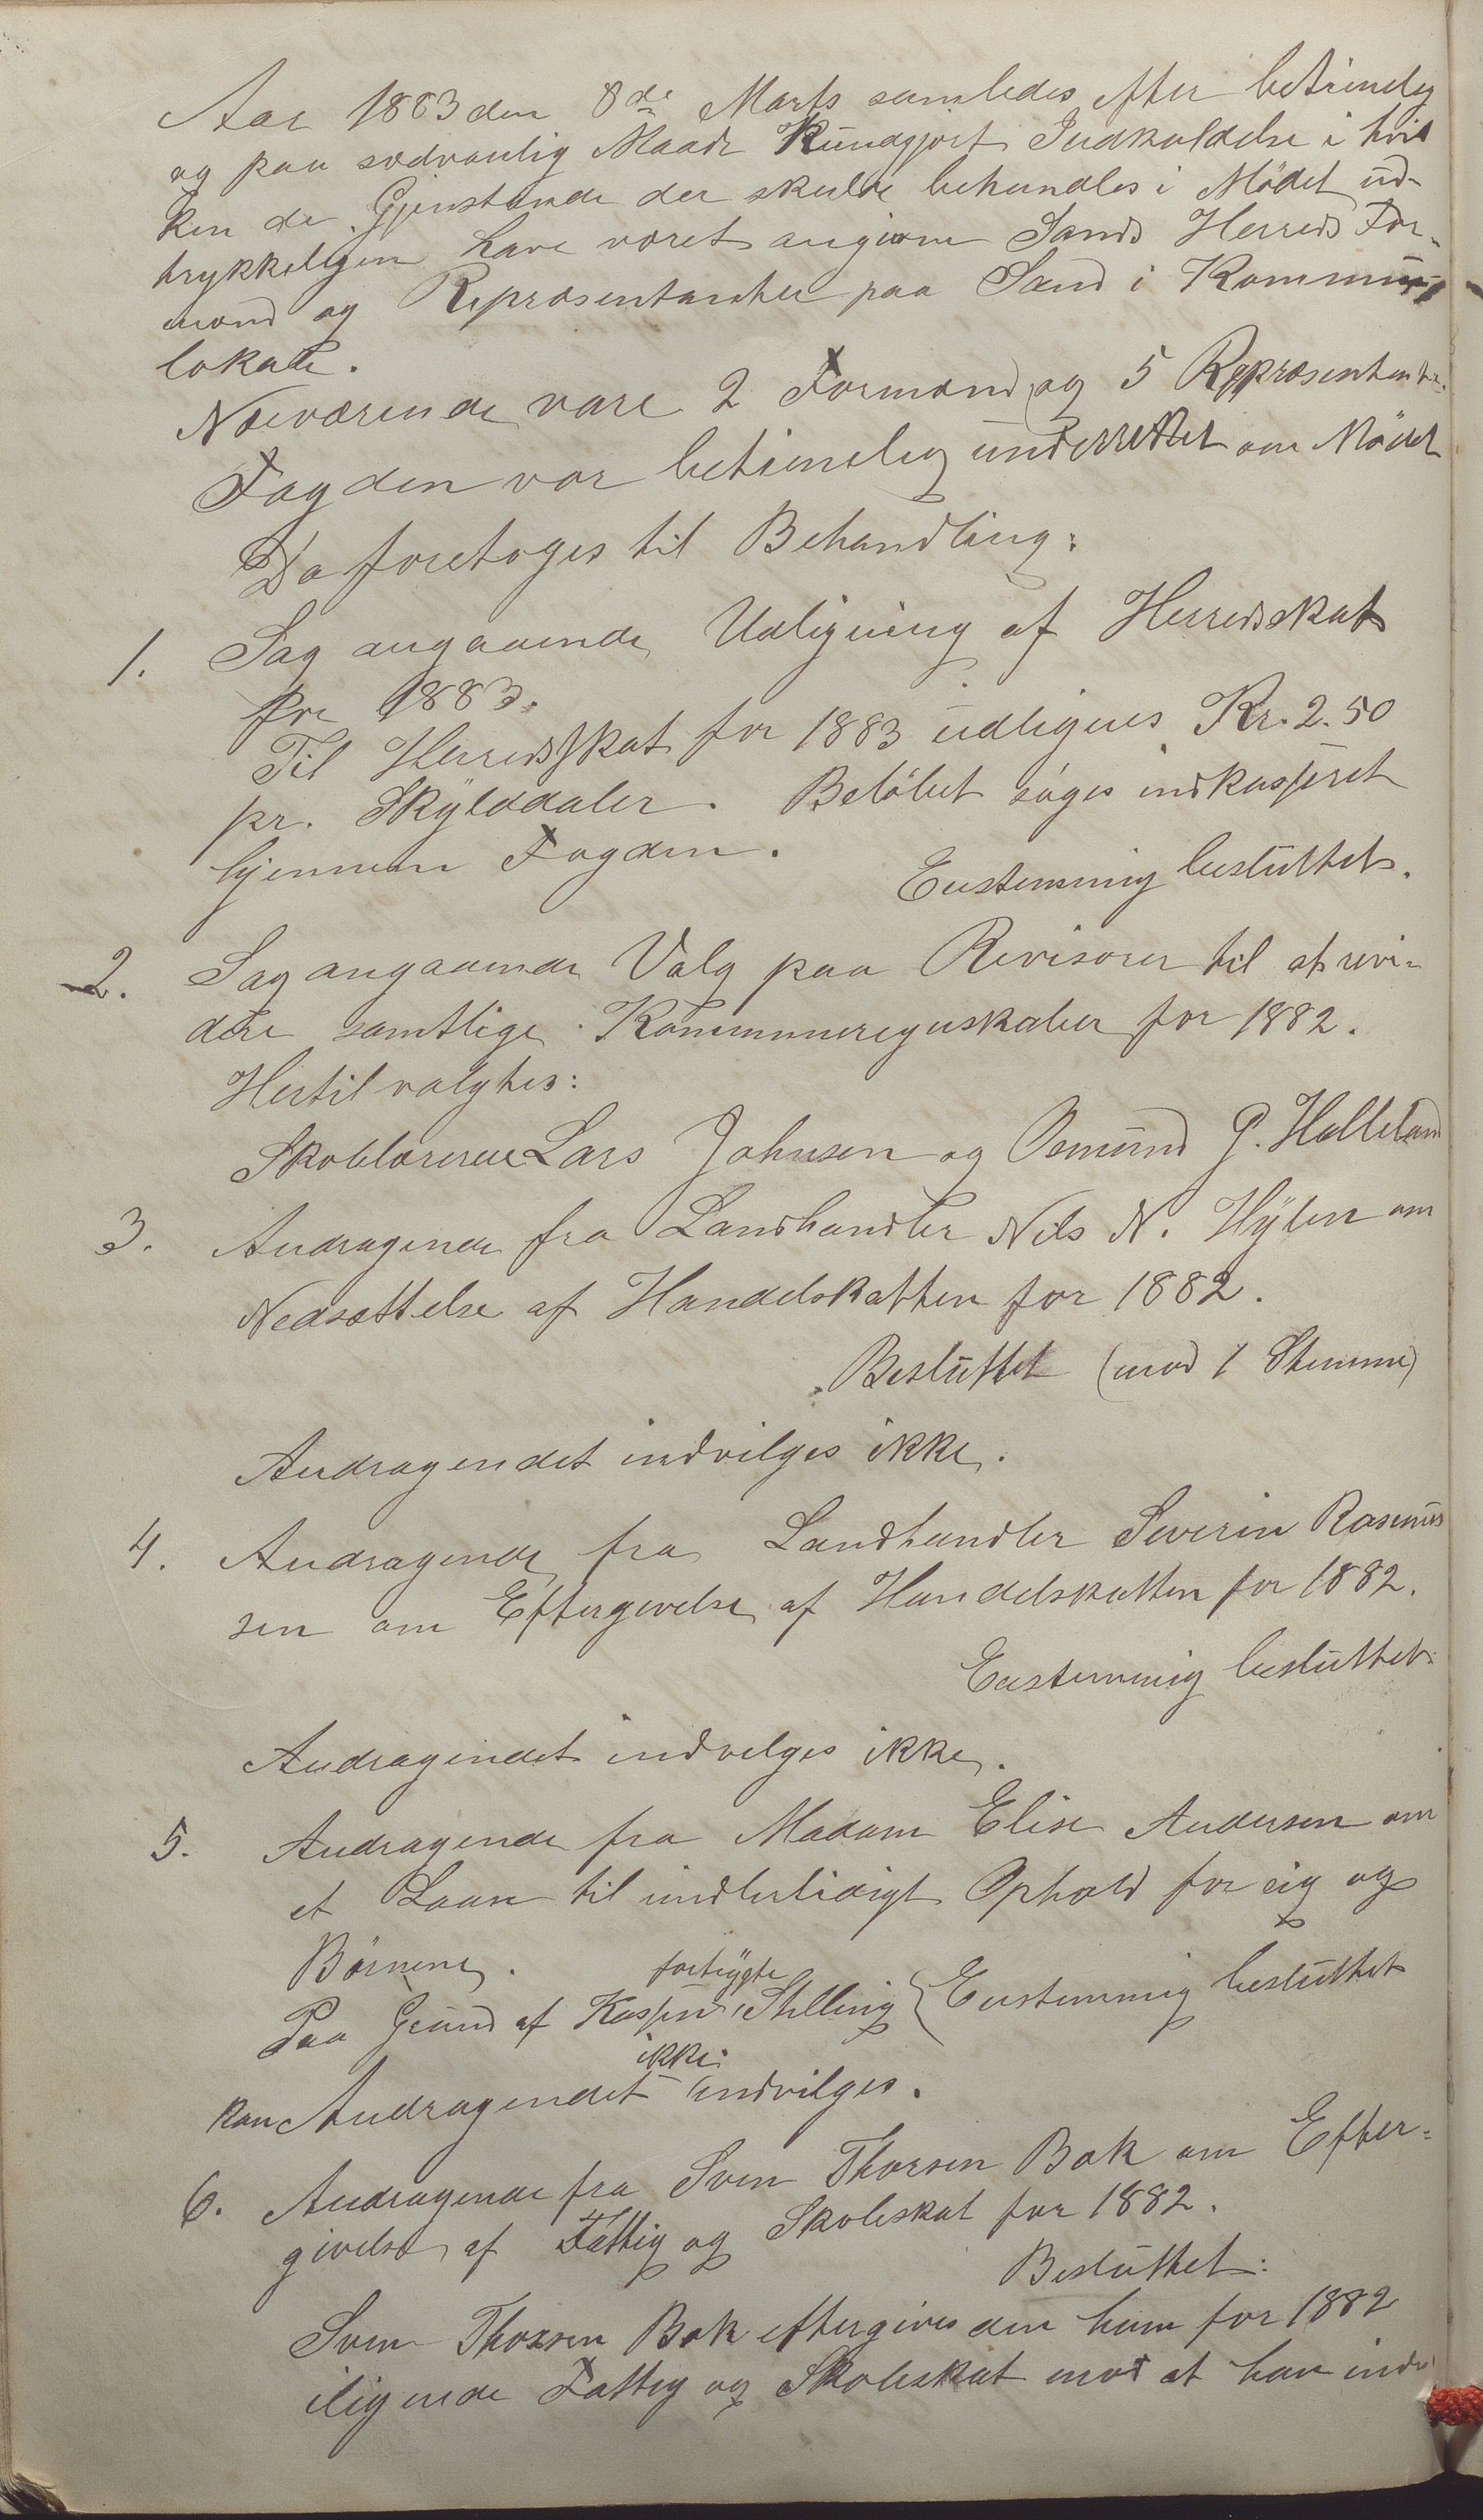 Aar 1883 den 8de Marts samledes efter betimelig
og paa sædvanlig Maade Kundgjort Indkaldelse i hvil
ken de Gjenstande der skulde behandles i Mödet ud-
trykkeligen have været angivne Sands Herreds For-
mænd og Repræsentanter paa Sand i Kommune
lokale.
Nærværende vare 2 Formænd og 5 Repræsentanter.
Fogden var betimelig underrettet om Mödet
Da foretoges til Behandling:
1. Sag angaaende Udligning af Herredsskat
for 1883.
Til Herredsskat for 1883 udlignes Kr. 2.50
pr. Skylddaler. Belöbet söges indkasseret
gjennem Fogden.
Enstemmig besluttet.
2. Sag angaaende Valg paa Revisorer til at revi-
dere samtlige Kommuneregnskaber for 1882.
Hertil valgtes:
Skolelærerne Lars Johnsen og Osmund G. Helleland
3. Andragende fra Landhandler Nils N. Hylen om
Nedsættelse af Handelskatten for 1882.
Besluttet (mod 1 Stemme)
Andragendet indvilges ikke.
4. Andragende fra Landhandler Severin Rasmus
sen om Eftergivelse af Handelskatten for 1882.
Enstemmig besluttet.
Andragendet indvelges ikke.
5. Andragende fra Madam Elise Andersen om
et Laan til midlertidigt Ophold for sig og
Börnene.
fortrygte
Paa Grund af Kassens Stilling { Enstemmig besluttet
ikke
kan Andragendet indvilges.
6. Andragende fra Sven Thorsen Bak om Efter-
givelse af Fattig og Skoleskat for 1882.
Besluttet:
Sven Thorsen Bak eftergives den ham for 1882
ilignede Fattig og Skoleskat mod at han inde